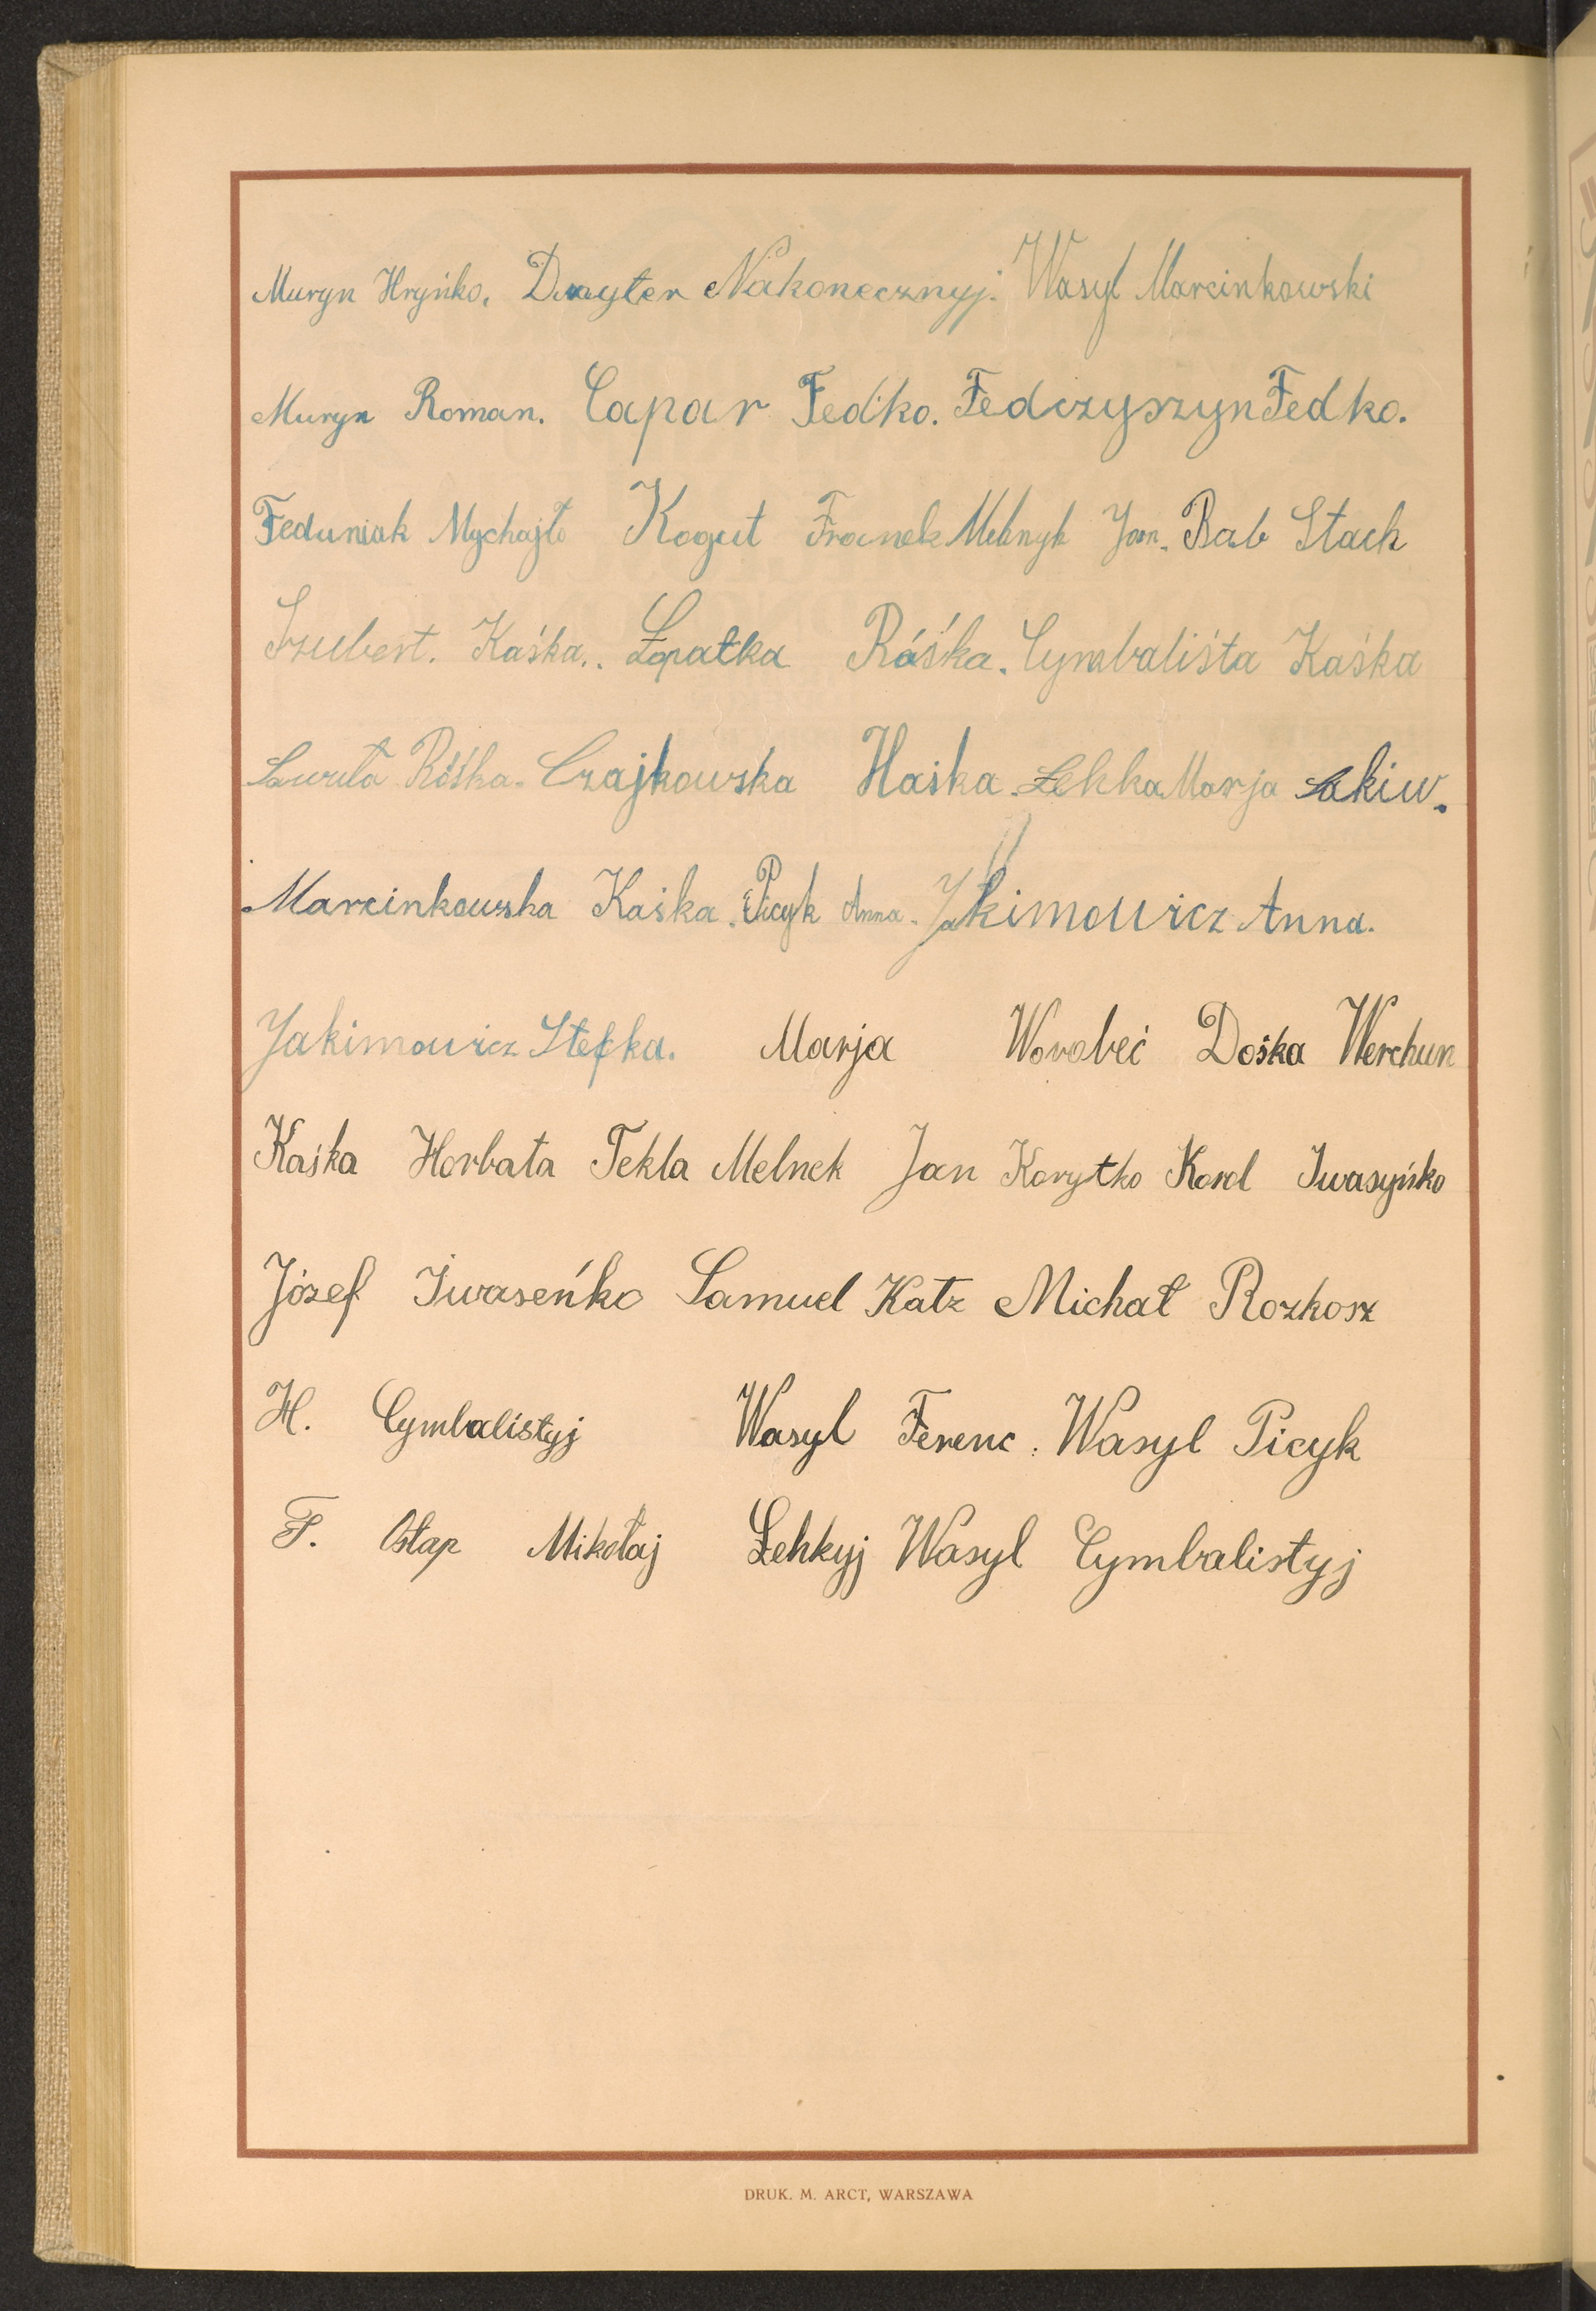 Muryn Hryńko. Dmyter Nakonecznyj. Wasyl Marcinkowski
Muryn Roman. Capar Fedko. Fedczyszyn Fedko.
Feduniak Mychajło Kogut Franek Melnyk Jan. Bab Stach
Szubert. Kaśka.. Łopatka Róśka. Cymbaliśta Kaśka
Róśka. Czajkowska Haśka. Łehka Marja Łakiw.
Marcinkowska Kaśka. Picyk Anna. Jakimowicz Anna.
Jakimowicz Stefka. Marja Worobeć Dośka Werchun
Kaśka Horbata Tekla Melnek Jan Korytko Karol Iwasyńko
Józef Iwaseńko Samuel Katz Michał Rozkosz
H. Cymbalistyj Wasyl Ferenc. Wasyl Picyk
F. Ostap Mikołaj Łehkyj Wasyl Cymbalistyj
DRUK. M. ARCT, WARSZAWA